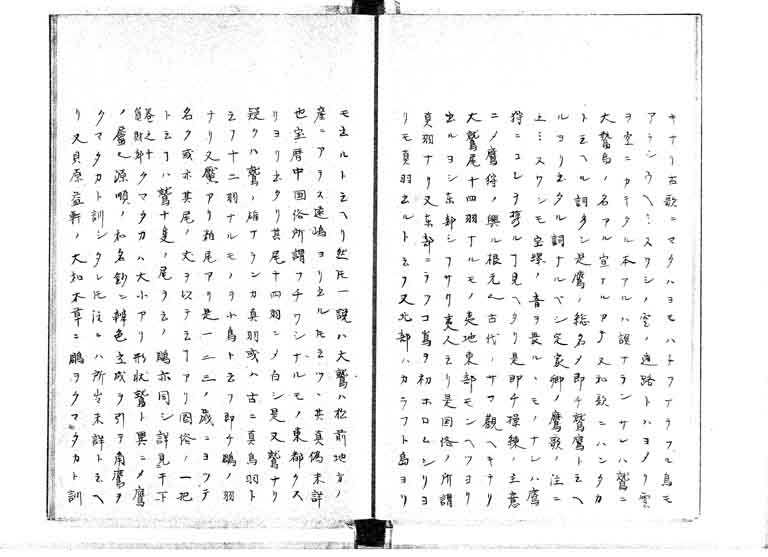 キナリ古歌ニマタハヨモハトフアラフル鳥モ
アラシウヘミスワシノ空ノ通路トハヨメリ雲
ヲ空ニカキタル本アルハ誤ナランサレハ鷲ニ
大鷲鳥ノ名アル宜ナルアヽ又和歌ニハシタカ
トミヘル詞多シ是鷹ノ総名ノ即チ鷲鷹トミ
ルヨリ出タル詞ナルベシ定家卿ノ鷹歌ノ注ニ
ミスワシモ空堺ノ音ヲ畏ルヽモノナレハ鷹
狩ニコレヲ携ル丁見ヘタリ是即チ操練ノ主意
ニメ鷹狩ノ興ル根元也古代ノサマ観ヘキナリ
大鷲尾十四羽ナルモノ夷地東部モンベツヨリ
出ルヨシ東部シフサリ夷人云リ是国俗ノ所謂
真羽ナリ又東部ニラフコ嶌ヲ初ホロムシリヨ
リモ真羽出ルト云フ又北部ハカラフト島ヨリ
モ出ルト云ヘリ然トモ一説ハ大鷲ハ松前地方ノ
産ニアラス遠嶋ヨリ出ルトモ云フ其真偽未詳
也宝暦中国俗所謂フチワシナルモノ東都クス
リヨリ出タリ其尾十四羽ニメ白シ是又鷲ナリ
疑クハ鷲ノ雄ナランカ真羽或ハ古ニ真鳥羽ト
云フ十二羽ナルモノヲ小鳥ト云フ即チ鵰ノ羽
ナリ又麤アリ雑尾アリ是一二三ノ歳ニヨフテ
名ク或ホ其尾ノ丈ヲ以テ云丁アリ国俗ノ一把
ト云丁ハ鷲十隻ノ尾ヲ云ノ鵰亦同シ詳見于下
巻之十貨財部クマタカハ大小アリ形状鷲ト異ニメ鷹
ノ属也源順ノ和名鈔ニ辨色立成ヲ引テ角鷹ヲ
クマタカト訓シタレトモ注ルハ所出未詳ト云ヘ
リ又貝原益軒ノ大和本草ニ鵰ヲクマタカト訓